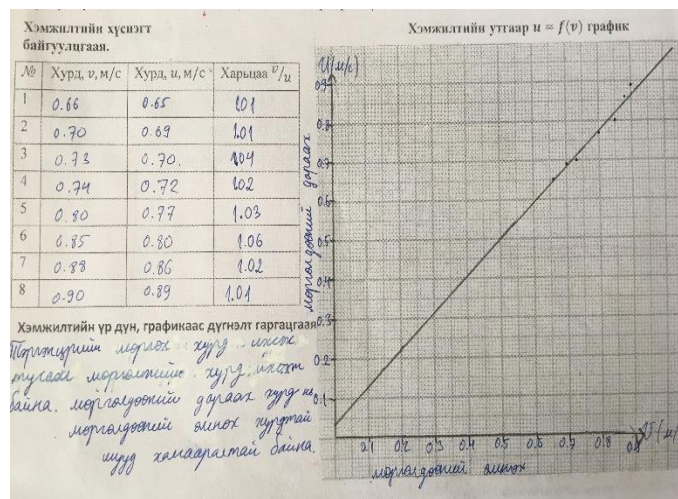 Хэмжилтийн хүснэгт
байгуулцгаая.
№ Хурд, v, м/с Хурд, u, м/с Харьцаа v/u
1 0.66 0.65 1.01
2 0.70 0.69 1.01
3 0.73 0.70. 1.04
4 0.74 0.72 1.02
5 0.80 0.77 1.03
6 0.85 0.80 1.06
7 0.88 0.86 1.02
8 0.90 0.89 1.01
Хэмжилтийн үр дүн, графикаас дүгнэлт гаргацгаая
Тэргэнцрийн мөргөх хурд ихсэх
тусам мөргөлтийн хурд ихсэж
байна. мөргөлдөөний дараах хурд нь
мөргөлдөөний өмнөх хурдтай
шууд хамааралтай байна.
Хэмжилтийн утгаар u = f(v) график
U(м/с)
мөргөлдөөний дараах
0.9
0.8
0.7
0.6
0.5
0.4
0.3
0.2
0.1
0.1 0.2 0.3 0.4 0.5 0.6 0.7 0.8 0.9
мөргөлдөөний өмнөх